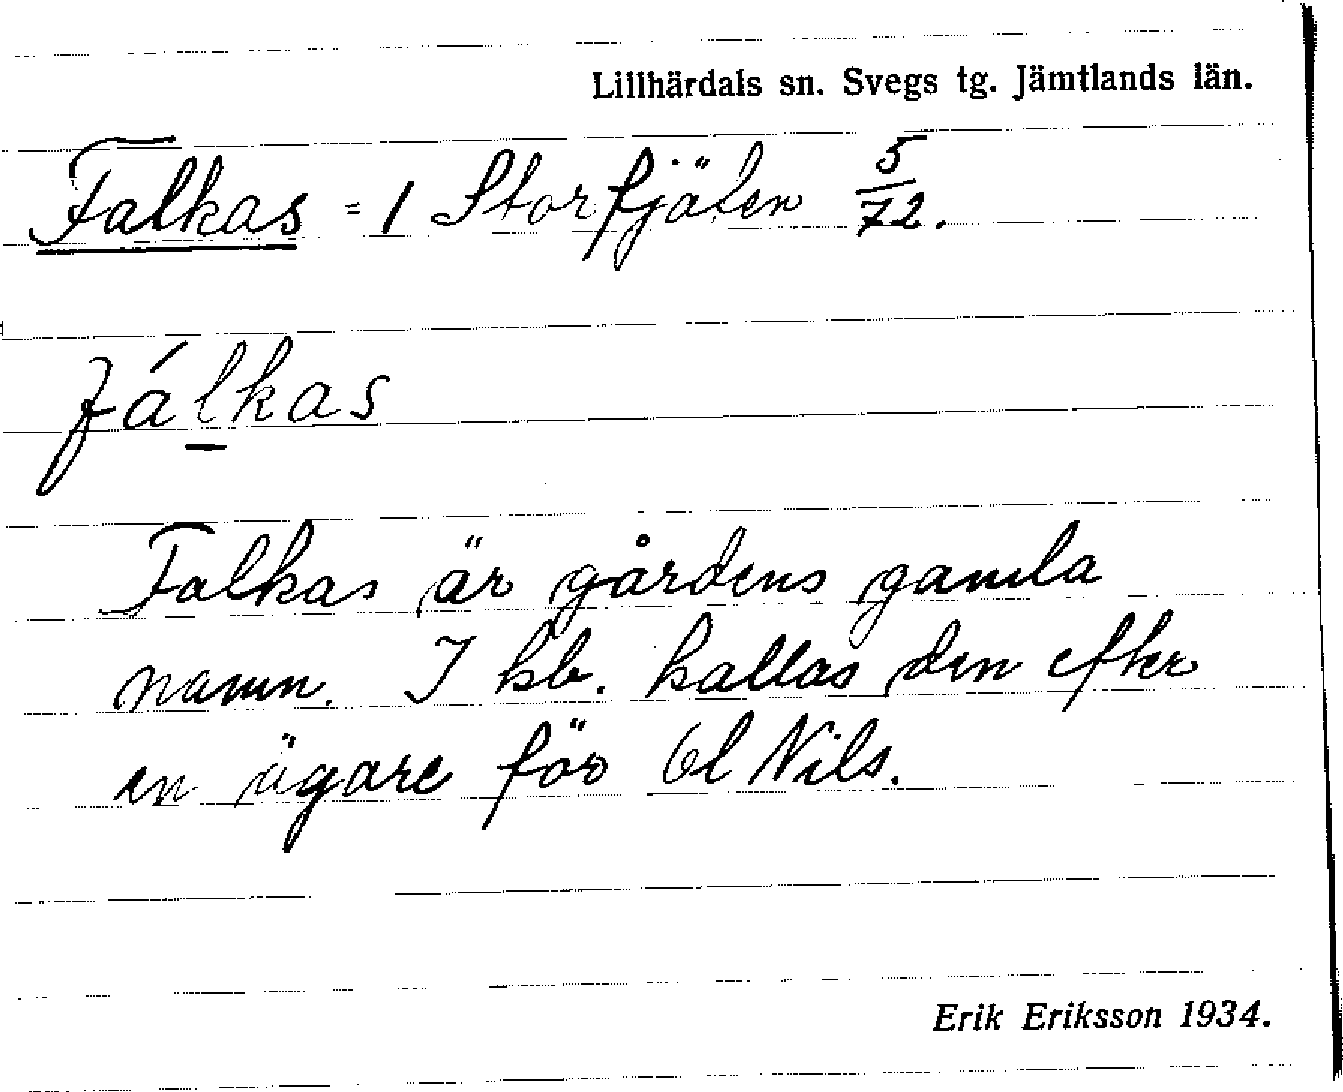 Lillhärdals sn. Svegs tg. Jämtlands län.
Falkas = 1 Storfjäten 5/72.
fálkas
Falkas är gårdens gamla
namn. I kb. kallas den efter
en ägare för Ol Nils.
Erik Eriksson 1934.